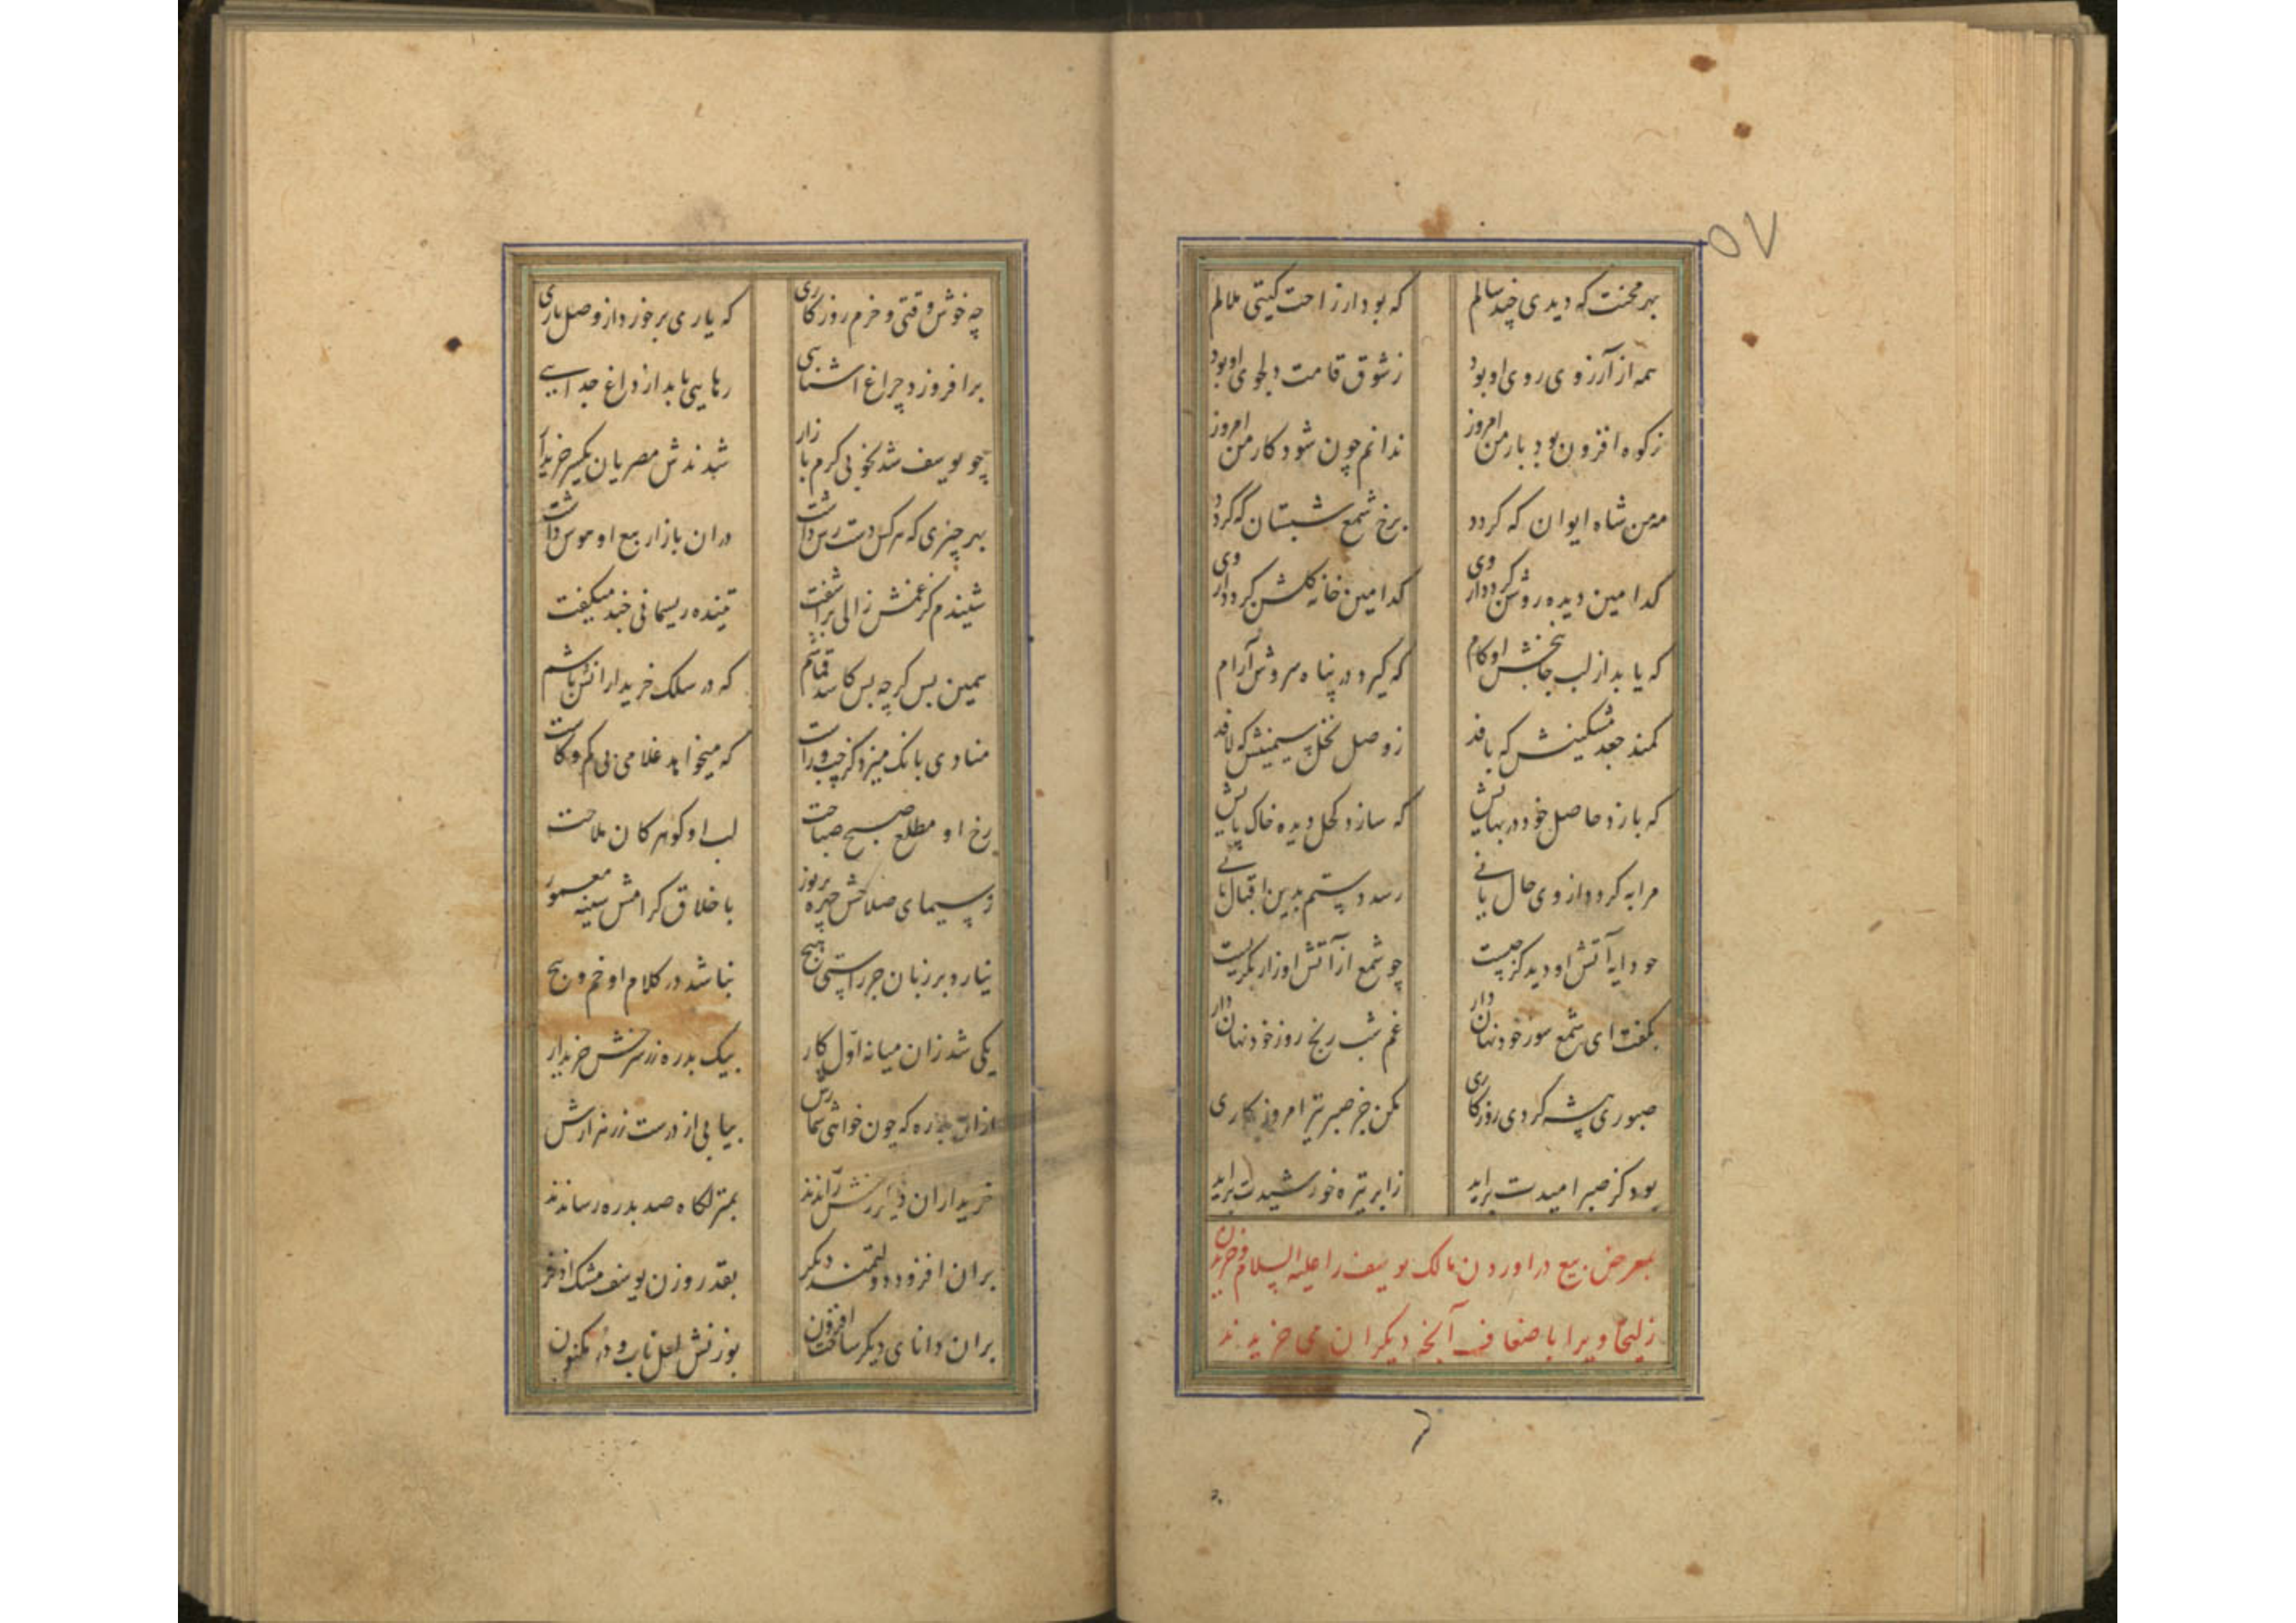 ۵۷
بهر محنت که دیدی چند سالم که بود از راحت گیتی ملالم
همه از آرزوی روی او بود ز شوق قامت دلجوی او بود
ز کوه افزون بود بار من امروز ندانم چون شود کار من امروز
مه من شاه ایوان که گردد برخ شمع شبستان که گردد
کدامین دیده روشن گردد از وی کدامین خانه گلشن گردد از وی
که یابد از لب جانبخش او کام که گیرد در پناه سروش آرام
کمند جعد مشکینش که بافد ز وصل نخل سیمینش که لافد
که بازد حاصل خود در بهایش که سازد کحل دیده خاک پایش
مرا به گردد از وی حال یا نی رسد دستم بدین اقبال یا نی
چو دایه آتش او دید کز چیست چو شمع از آتش او زار بگریست
بگفت ای شمع سوز خود نهان دار غم شب رنج روز خود نهان دار
صبوری پیشه کردی روزگاری مکن جز صبر نیز امروز کاری
بود کز صبر امیدت براید ز ابر تیره خورشیدت براید
بمعرض بیع دراوردن مالک یوسف را علیه السلام و خریدن
زلیخا ویرا باضعاف آنچه دیگران می خریدند
چه خوش وقتی و خرم روزگاری که یاری برخورد از وصل یاری
برافروزد چراغ اشنایی رهایی یابد از داغ جدایی
چو یوسف شد بخوبی گرم بازار شدندش مصریان یکسر خریدار
بهر چیزی که هر کس دست رس داشت دران بازار بیع او هوس داشت
شنیدم کز غمش زالی براشفت تنیده ریسمانی چند میگفت
همین بس گرچه بس کاسد قماشم که در سلک خریدارانش باشم
منادی بانک میزد کز چپ و راست که میخواهد غلامی بی کم و کاست
رخ او مطلع صبح صباحت لب او گوهر کان ملاحت
ز سیمای صلاحش چهره پر نوز باخلاق کرامش سینه معمور
نیارد بر زبان جز راستی هیچ نباشد در کلام او خم و پیچ
یکی شد زان میانه اول کار بیک بدره زر سرخش خریدار
ازان بدره که چون خواهی شمارش بیابی از درست زر هزارش
خریداران دیگر رخش راندند بمنزلگاه صد بدره رساندند
بران افزود دولتمند دیگر بقدر وزن یوسف مشک اذفر
بران دانای دیگر ساخت افزون بوزنش لعل ناب و در مکنون